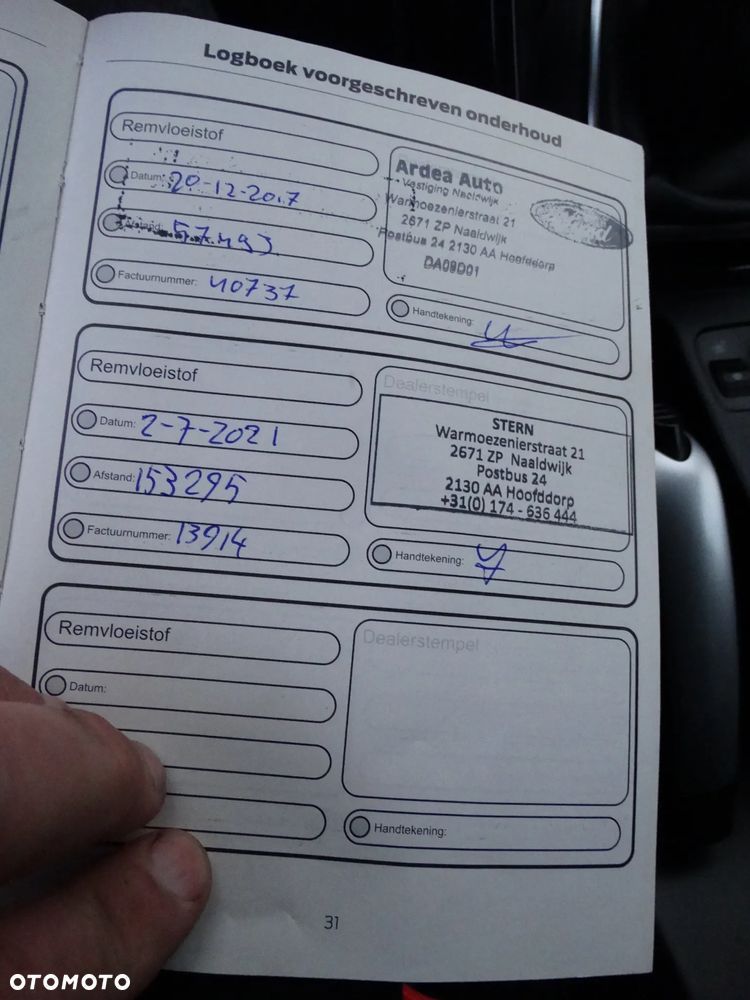 Logboek voorgeschreven onderhoud
Remvloeistof
Datum: 20-12-2017
Afstand: 57493
Factuurnummer: 40737
Ardea Auto
Vestiging Naaldwijk
Warmoezenierstraat 21
2671 ZP Naaldwijk
Postbus 24 2130 AA Hoofddorp
DA09D01
Ford
Handtekening:
Remvloeistof
Datum: 2-7-2021
Afstand: 153295
Factuurnummer: 13914
Dealerstempel
STERN
Warmoezenierstraat 21
2671 ZP Naaldwijk
Postbus 24
2130 AA Hoofddorp
+31(0) 174 - 636 444
Handtekening:
Remvloeistof
Datum:
Dealerstempel
Handtekening:
31
OTOMOTO